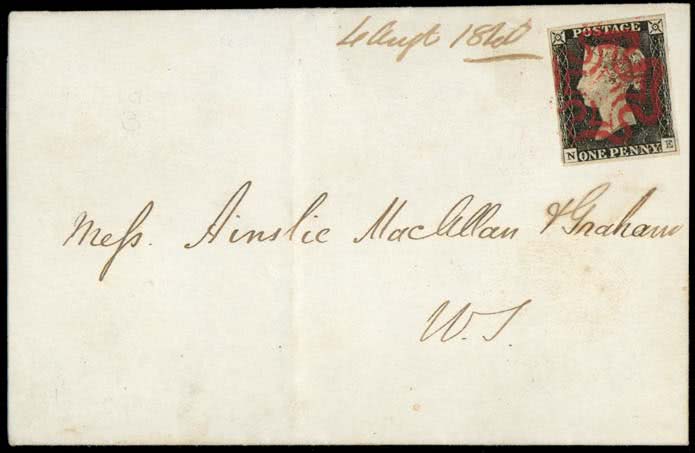 4 Augt 1840
POSTAGE
N ONE PENNY E
Mess. Ainslie Macallan & Graham
W.S.